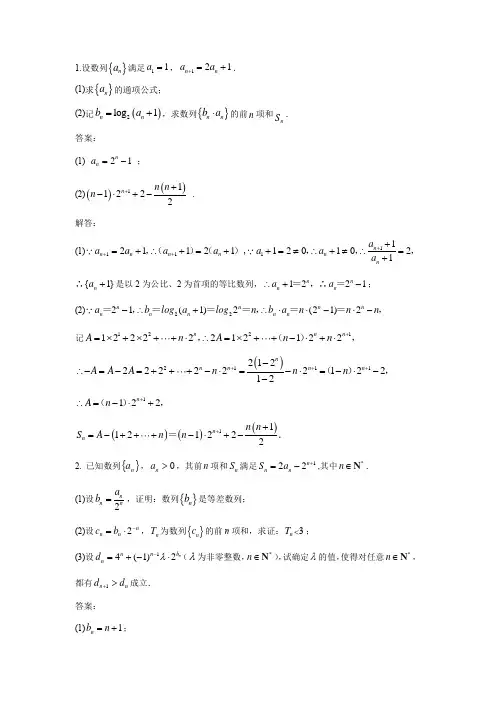 1.设数列{aₙ}满足a₁=1，aₙ₊₁=2aₙ+1.
(1)求{aₙ}的通项公式;
(2)记bₙ=log₂(aₙ+1)，求数列{bₙ·aₙ}的前n项和Sₙ.
答案:
(1) aₙ=2ⁿ−1 ;
(2)(n−1)·2ⁿ⁺¹+2−n(n+1)/2 .
解答:
(1)∵aₙ₊₁=2aₙ+1,∴(aₙ₊₁+1)=2(aₙ+1),∵a₁+1=2≠0,∴aₙ+1≠0,∴(aₙ₊₁+1)/(aₙ+1)=2,
∴{aₙ+1}是以2为公比、2为首项的等比数列，∴aₙ+1=2ⁿ，∴aₙ=2ⁿ−1;
(2)∵aₙ=2ⁿ−1,∴bₙ=log₂(aₙ+1)=log₂2ⁿ=n,∴bₙ·aₙ=n·(2ⁿ−1)=n·2ⁿ−n,
记A=1×2¹+2×2²+⋯+n·2ⁿ,∴2A=1×2²+⋯+(n−1)·2ⁿ+n·2ⁿ⁺¹,
∴−A=A−2A=2+2²+⋯+2ⁿ−n·2ⁿ⁺¹=2(1−2ⁿ)/(1−2)−n·2ⁿ⁺¹=(1−n)·2ⁿ⁺¹−2,
∴A=(n−1)·2ⁿ⁺¹+2,
Sₙ=A−(1+2+⋯+n)=(n−1)·2ⁿ⁺¹+2−n(n+1)/2.
2. 已知数列{aₙ}，aₙ>0，其前n项和Sₙ满足Sₙ=2aₙ−2ⁿ⁺¹,其中n∈N*.
(1)设bₙ=aₙ/2ⁿ，证明：数列{bₙ}是等差数列;
(2)设cₙ=bₙ·2⁻ⁿ，Tₙ为数列{cₙ}的前n项和，求证：Tₙ<3;
(3)设dₙ=4ⁿ+(−1)ⁿ⁻¹λ·2^(bₙ)(λ为非零整数，n∈N*)，试确定λ的值，使得对任意n∈N*，
都有dₙ₊₁>dₙ成立.
答案:
(1)bₙ=n+1;